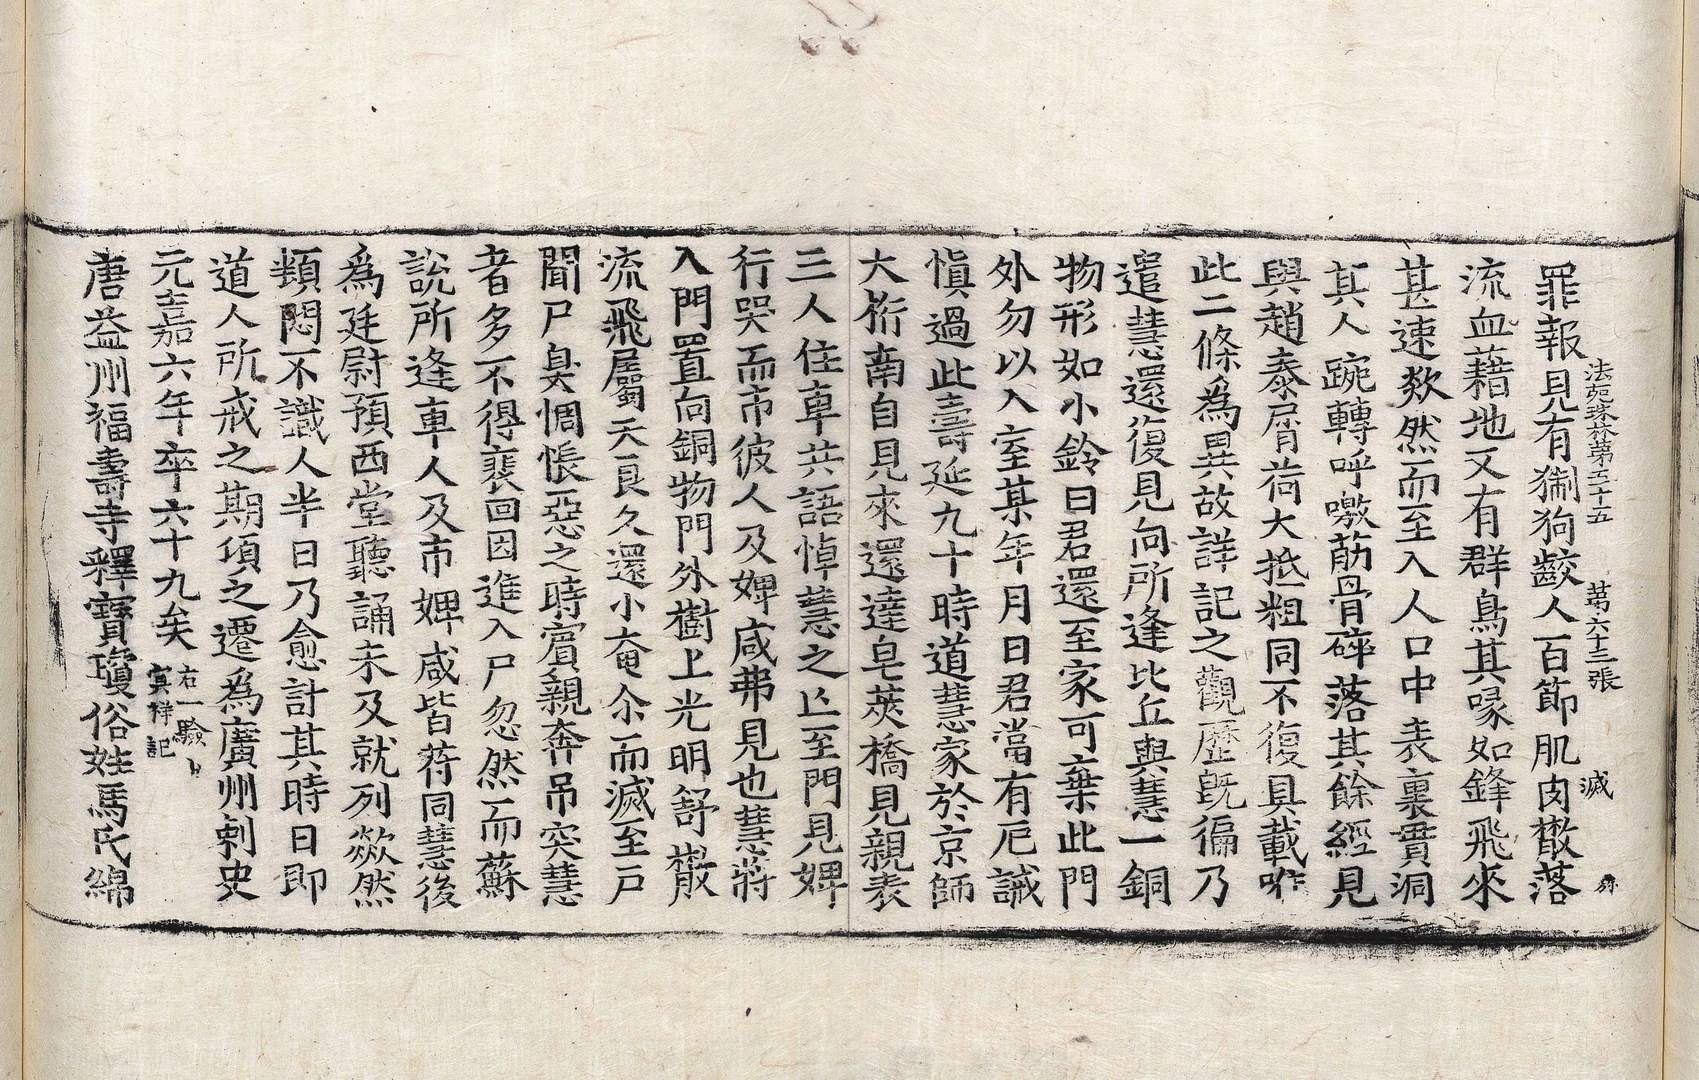 法苑珠林第五十五 第六十三張 滅
罪報見有猘狗齩人百節肌肉散落
流血藉地又有群鳥其喙如鋒飛來
甚速欻然而至入人口中表裏貫洞
其人踠轉呼噭筋骨碎落其餘經見
與趙泰屑荷大抵粗同不復具載唯
此二條爲異故詳記之觀歷旣徧乃
遣慧還復見向所逢比丘與慧一銅
物形如小鈴曰君還至家可棄此門
外勿以入室某年月日君當有厄誡
愼過此壽延九十時道慧家於京師
大桁南自見來還達皂莢橋見親表
三人住車共語悼慧之亡至門見婢
行哭而市彼人及婢咸弗見也慧將
入門置向銅物門外樹上光明舒散
流飛屬天良久還小奄尒而滅至戶
聞尸臭惆悵惡之時賓親奔吊突慧
者多不得裵回因進入尸忽然而蘇
說所逢車人及市婢咸皆苻同慧後
爲廷尉預西堂聽誦未及就列欻然
頪悶不識人半日乃愈計其時日即
道人所戒之期頃之遷爲廣州刺史
元嘉六年卒六十九矣 右一驗 冥祥記
唐益州福壽寺釋寶瓊俗姓馬氏綿